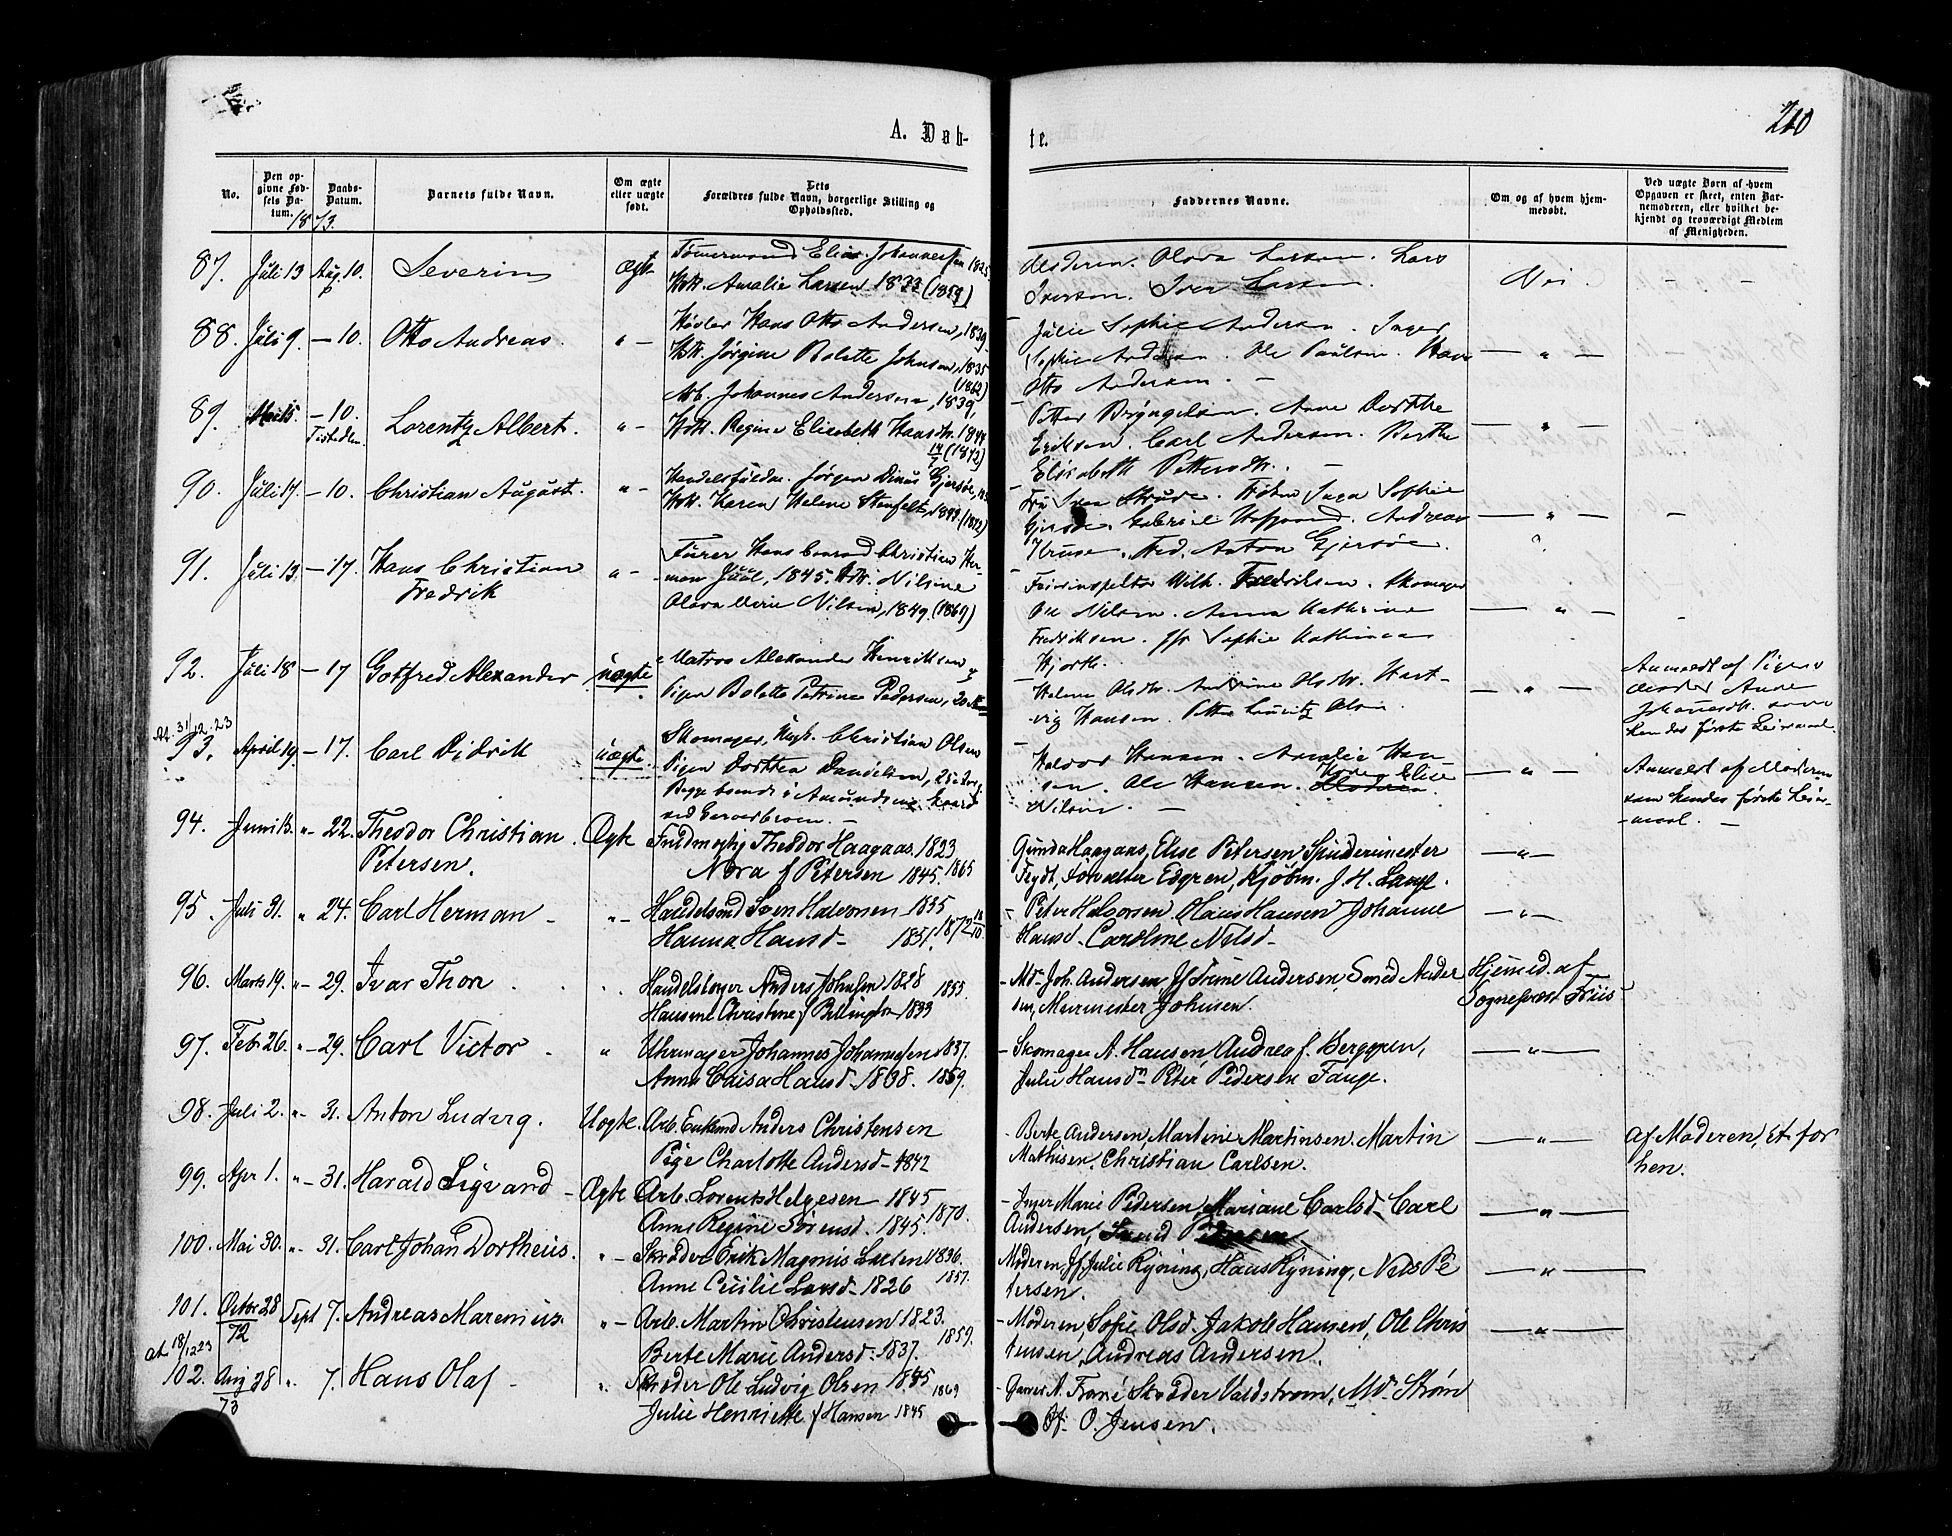 A. Daab-
te.
210
No.
Den op-
givne Fød-
sels Da-
tum.
Daabs-
Datum.
1873.
Barnets fulde Navn.
Om ægte
eller uægte
født.
Dets
Forældres fulde Navn, borgerlige Stilling og
Opholdssted.
Faddernes Navne.
Om og af hvem hjem-
medøbt.
Ved uægte Børn af hvem
Opgaven er skeet, enten Bar-
nemoderen, eller hvilket be-
kjendt og troværdigt Medlem
af Menigheden.
87. Juli 13 Aug. 10. Severin Ægte Tømermand Elias Johannesen 1825
Hstr. Amalie Larsen 1833 (1859)
Moderen. Olava Larsen. Lars
Iversen. Iver Larsen. Nei. - -
88. Juli 9. — 10. Otto Andreas. " - Høvler Hans Otto Andersen, 1839
Hstr. Jørgine Bolette Johnsen, 1835
(1862)
Julie Sophie Andersen. Inger
Sophie Andersen. Ole Paulsen. Hans — " —
Otto Andersen. —
89. — 10. Lorentz Albert. " - Arb. Johannes Andersen, 1839
Hstr. Regine Elisabeth Hansdtr. 1844
(1872)
Petter Bryngelsen. Anne Dorthe
Eriksen. Carl Andersen. Berthe — " —
Elisabeth Pettersdtr. —
90. Juli 17. — 10. Christian August. " - Jørgen Dinus Gjersøe,
Hstr. Karen Helene Stenfeldt, 1849 (1872)
Fru Struve. Frøken Inga Sophie
Gjersøe. Gabriel. Andreas — " — -
Kruse. Fred. Anton Gjersøe.
91. Juli 13. — 17. Hans Christian
Fredrik " - Furer Hans Conrad Christian Her-
man Juul, 1845. Hstr. Nilsine
Olava Marie Nilsen, 1849. (1869)
Wilh. Fredriksen. Skomager
Ole Nilsen. Anna Kathrine — " — -
Fredriksen. Jfr Sophie Kathinca
Hjorth.
92. Juli 18 — 17 Gotfred Alexander uægte Matros Alexander Henriksen
Pigen Bolette Petrine Pedersen, 20
Helene Olsdtr. Andrine Olsdtr. Hart-
vig Hansen. Petter Lauritz Olsen. — " —
Anmeldt af Pigens
Moder Anne
Johannesdtr. som
hendes første Leiermaal.
At. 31/12.23
93. April 19. — 17. Carl Didrik uægte. Skomager, Ungk. Christian Olsen
Pigen Dorthea Danielsen, 25
Begge boende i Amundsens Gaard
ved —
Halvor Hansen. Amalie Han-
sen. Ole Hansen. Karen Elise — " —
Nilsen —
Anmeldt af Moderen
som hendes første Leier-
maal. —
94. Juni 13. "- 22. Theodor Christian
Petersen. Ægte Theodor Haagaas. 1823
Nora f Petersen 1845. 1865
Gunda Haagaas, Elise Petersen
Feydt, Forvalter Edgren, Kjøbm. J. H. Lange. —"—
95. Juli 31. " 24. Carl Herman — "- Handelsmd Sven Halvorsen 1835
Hanna Hansd- 1851. 1872 18/10
- Peter Halvorsen. Olaus Hansen Johanne —"—
Hansd. Caroline Nilsd-
96. Marts 19. "- 29. Ivar Thon Anders Johnsen 1828 1855
Hansine Christine f Billington 1833
- Md. Joh. Andersen, Jf Trine Andersen, Smed Ander
sen, Murmester Johnsen. Hjemd. af
Sognepræst Friis
97. Feb. 26. "- 29. Carl Victor " Uhrmager Johannes Johannesen 1837.
Anna Caisa Hansd- 1838. 1859.
- Skomager A. Hansen, Andrea f. Berggren, —"—
Julie Hansdn Peter Pedersen Fange.
98. Juli 2. "- 31. Anton Ludvig. Uægte. Arb. Enkemd Anders Christensen
Pige Charlotte Andersd- 1842
- Berte Andersen, Martine Martinsen. Martin —"—
Mathisen, Christian Carlsen. Af Moderen, 1t. for
hen.
99. Apr 1. "- 31. Harald Sigvand - Ægte Arb. Lorents Helgesen 1845
Anne Regine Sørensd. 1845. 1870.
- Inger Marie Pedersen, Mariane Carlsd. Carl —"—
Andersen, Svend Pedersen
100. Mai 30. "- 31. Carl Johan Dortheus. "- Skræder Erik Magnus Larsen 1836.
Anne Cecilie Larsd- 1826 1857.
Moderen, Jf Julie Ryning, Hans Ryning, Nils Pe —"—
tersen.
101. Octbr 28
72 Sept 7. Andreas Marenius. "- Arb. Martin Christensen 1823.
Berte Marie Andersd. 1837. 1859.
- Moderen, Sofie Olsd. Jakob Hansen, Ole Chris —"—
tensen, Andreas Andersen.
at 18/12 23
102. Aug 28
73 " 7. Hans Olaf - ". Skræder Ole Ludvig Olsen 1845 1869
Julie Henriette f Hansen 1845
Skræder Valdstrøm, Md. Strøm
Jf. O. Jensen.